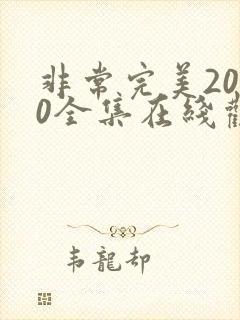 非常完美20
0全集在綫
韦龍却